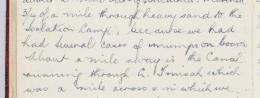 3/4 of a mile through heavy sand to the
Isolation Camp, because we had
had several cases of mumps on board
About a mile away is the Canal
running through L. Timsah which
was a mile across & in which we